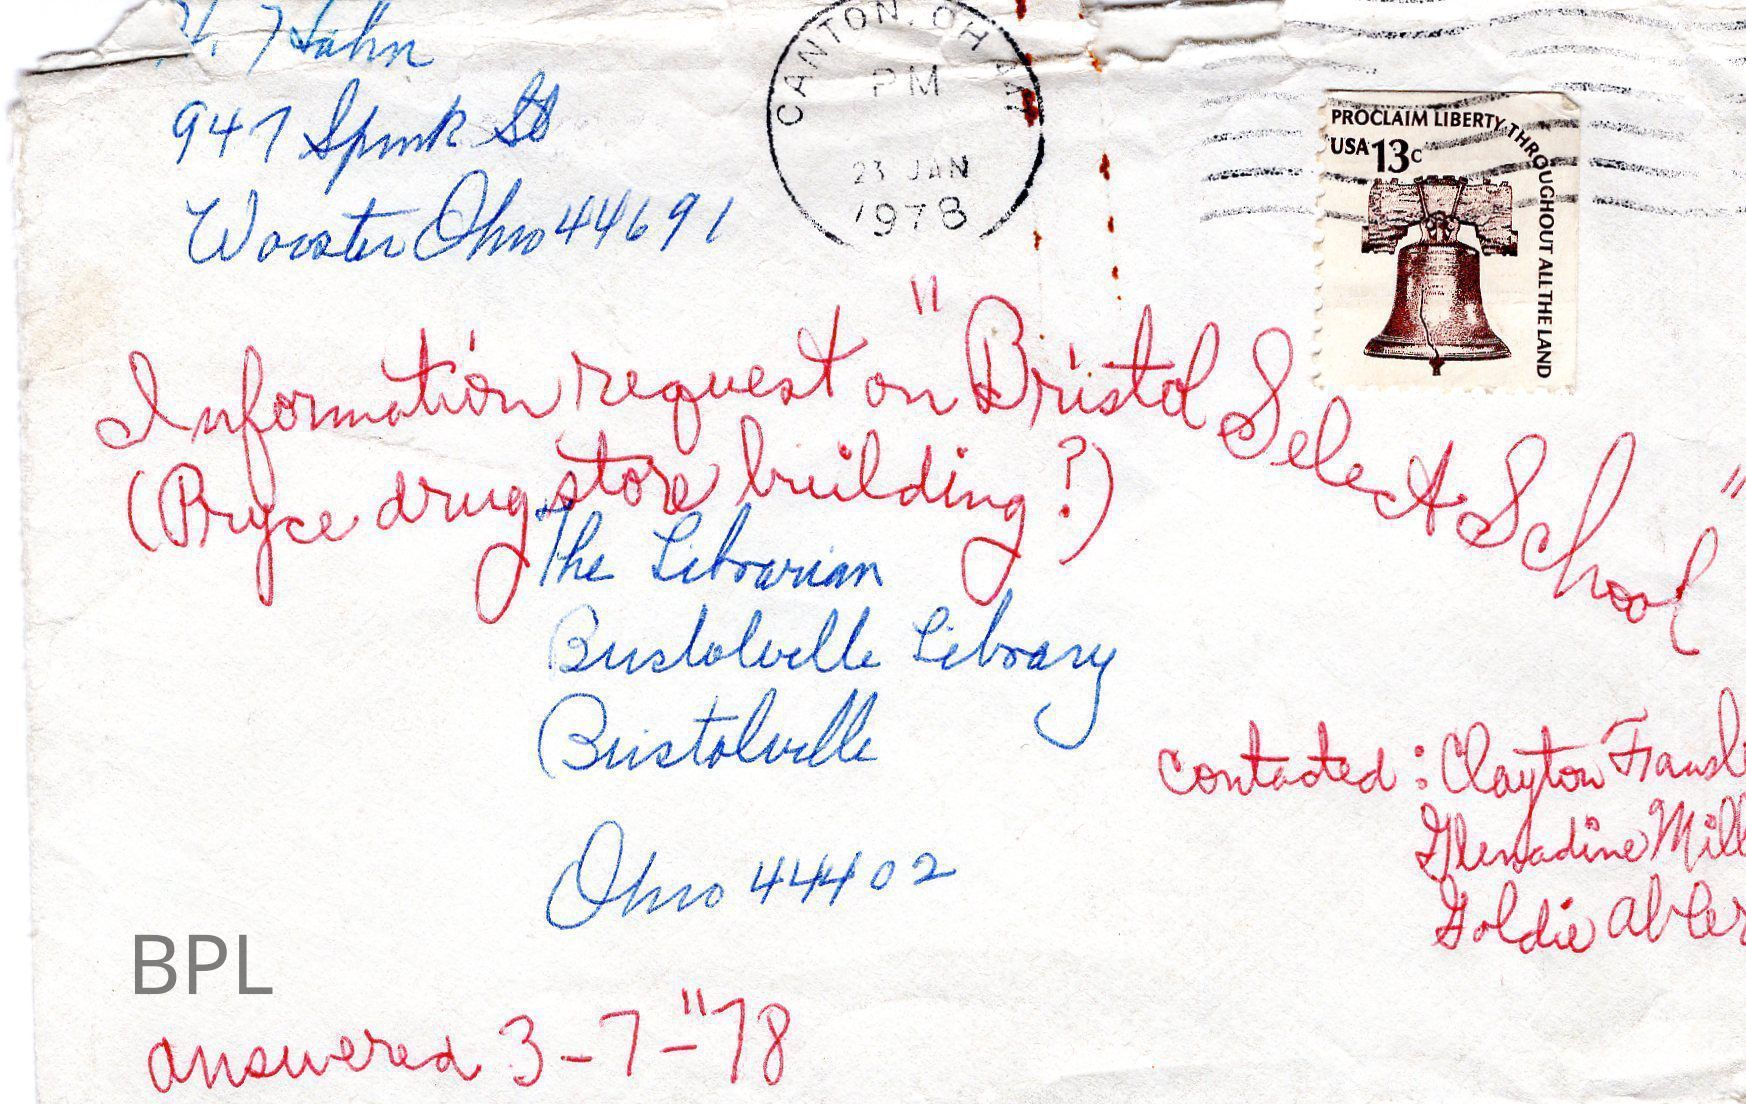 Hahn
947 Spink St
Wooster Ohio 44691
CANTON, OH
PM
23 JAN
1978
PROCLAIM LIBERTY THROUGHOUT ALL THE LAND
USA 13c
Information request on "Bristol Select School"
(Bryce drug store building?)
The Librarian
Bristolville Library
Bristolville
Ohio 44402
contacted: Clayton
Glenadine Mill
Goldie
BPL
answered 3-7-"78